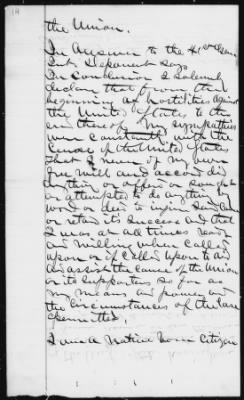 the Union.
In Answer to the 43rd
Int. Deponent says
In conclusion I solemnly
declare that from the
beginning of hostilities against
the United States to the
end thereof my sympathies
were constantly with the
cause of the United States
that I never of my own
free will and accord did
anything or offer or sought
or attempted to do anything by
word or deed to injure said cause
or retard its success and that
I was at all times ready
and willing when called
upon or if called upon to aid
and assist the cause of the Union
or its supporters so far as
my means and power and
the circumstances of the case
permitted.
I am a Native born Citizen